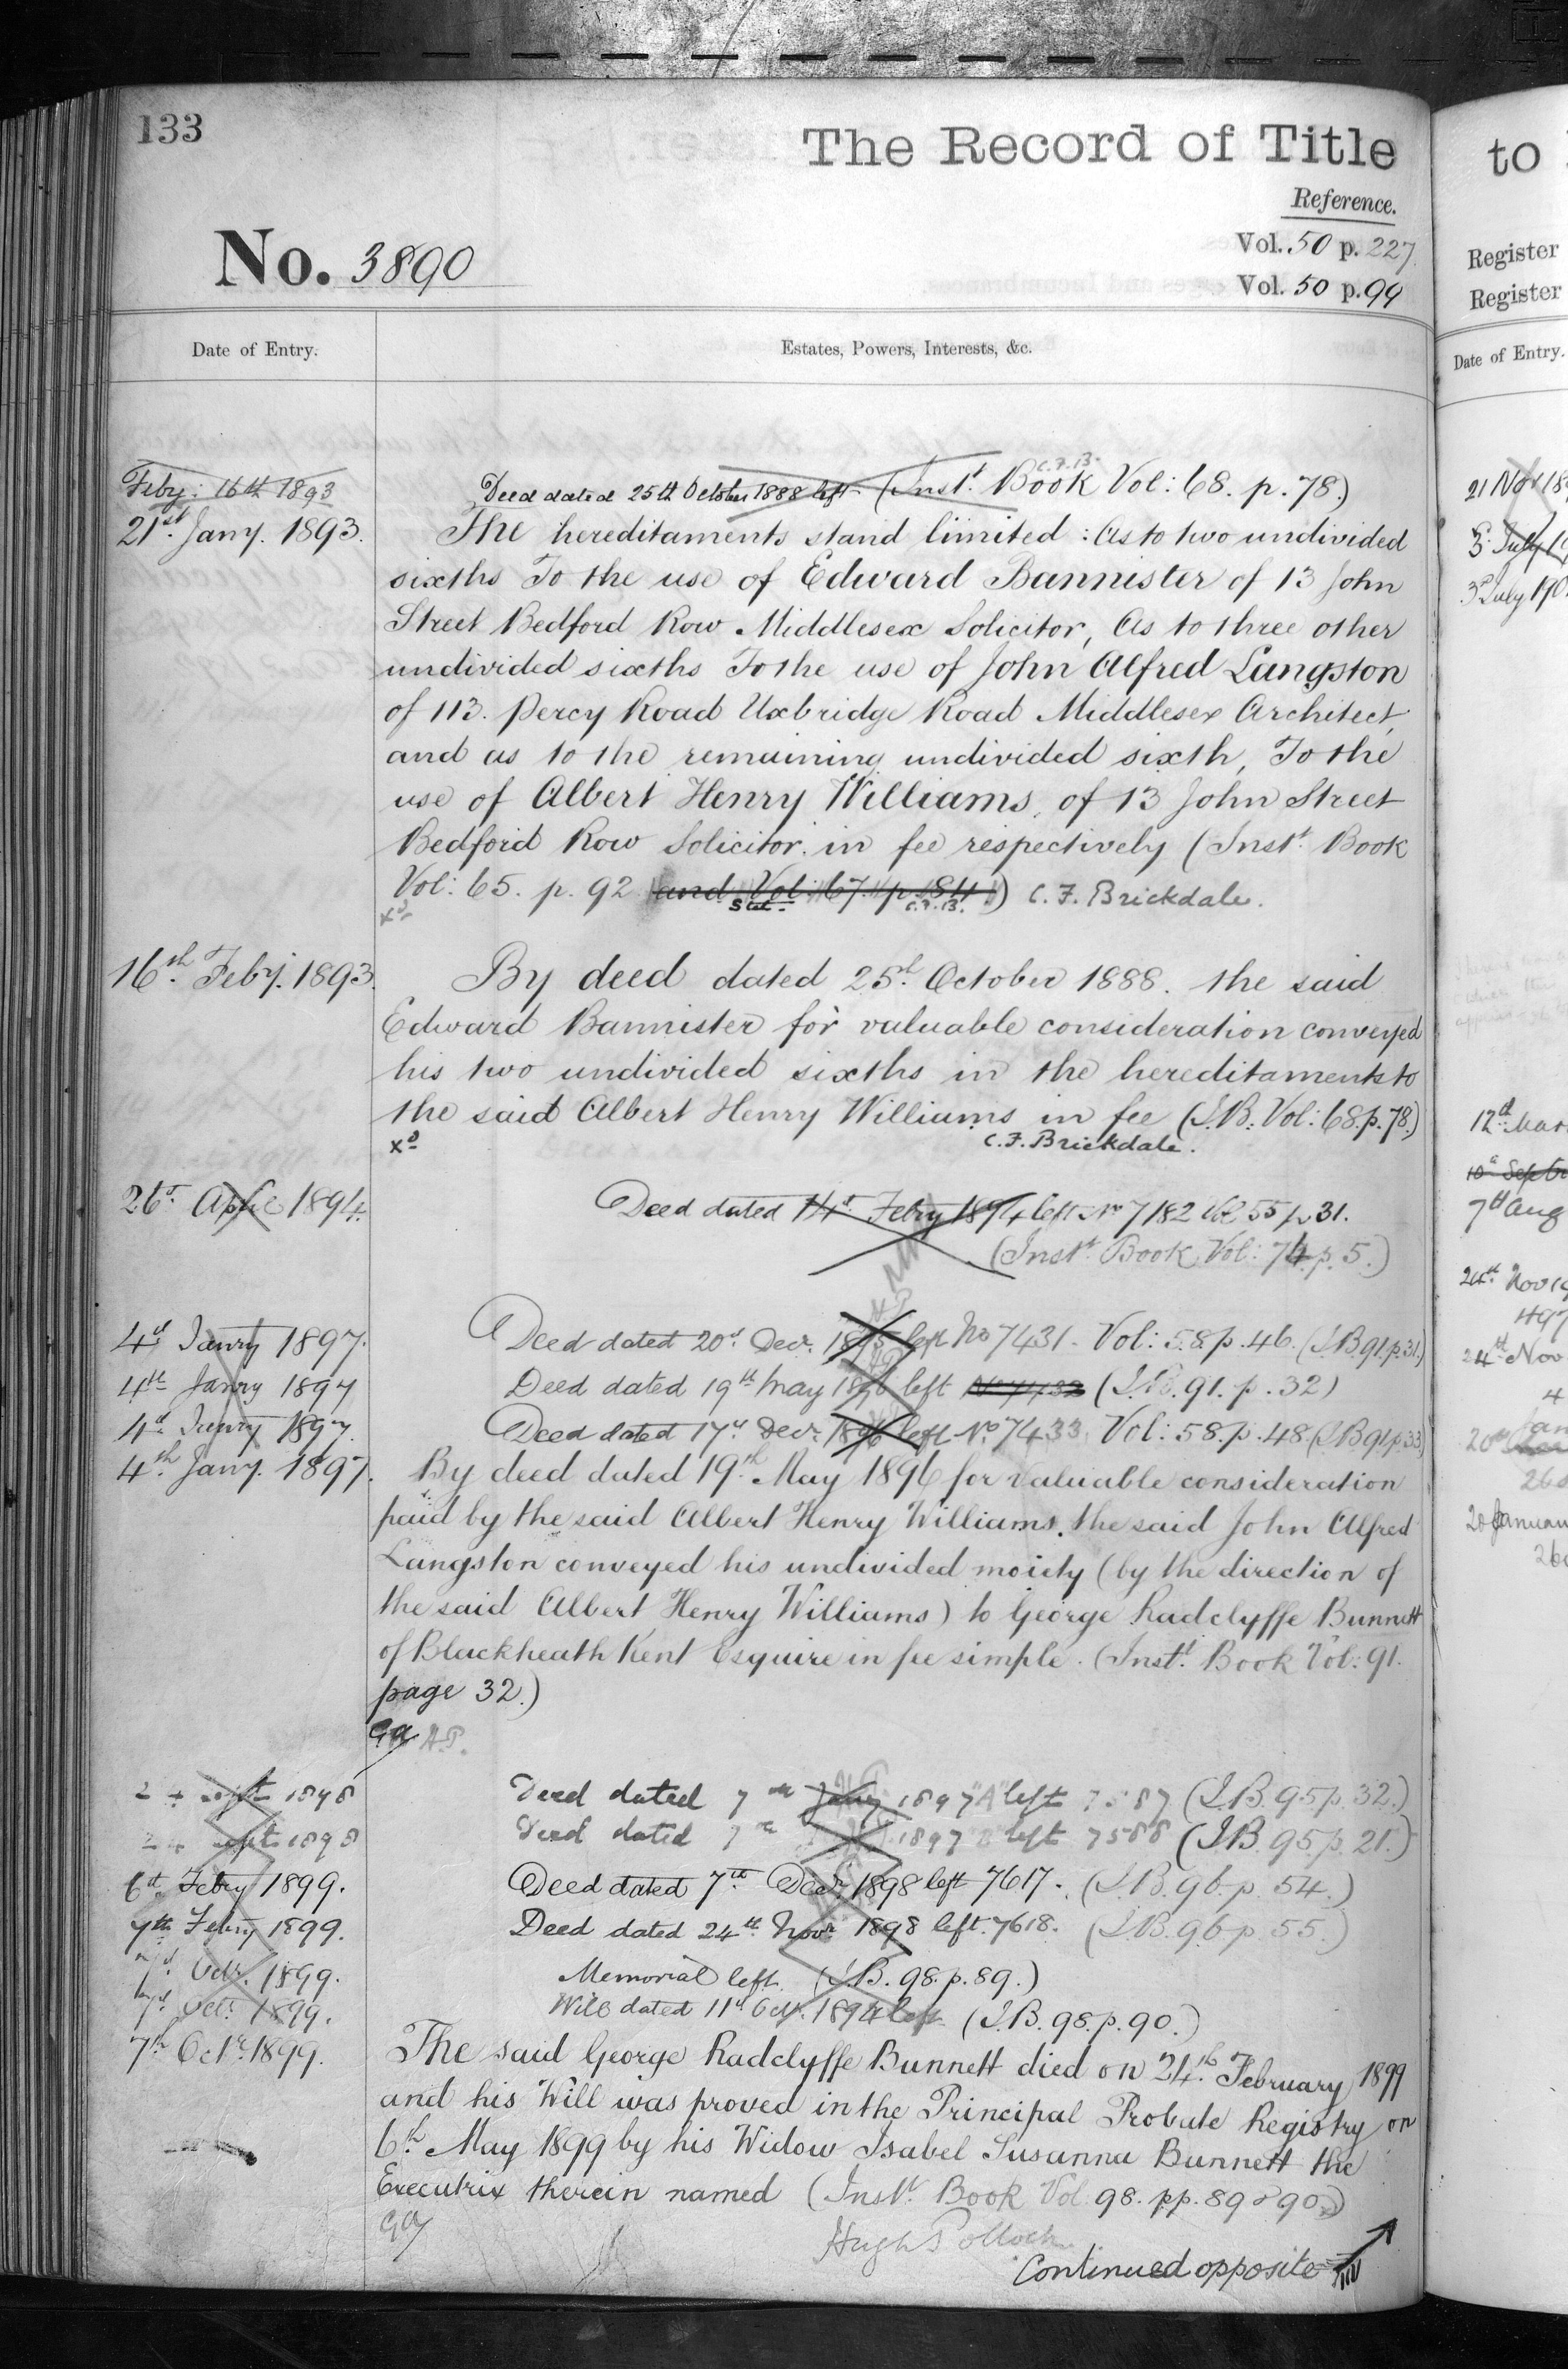 133
The Record of Title
to
Reference.
No. 3890
Vol. 50 p. 227
Vol. 50 p. 99
Register
Register
Date of Entry.
Estates, Powers, Interests, &c.
Date of Entry.
Feby: 16th 1893
Deed dated 25th October 1888 left (Inst. Book Vol: 68. p. 78.)
C.F.B.
21st Jany. 1893.
The hereditaments stand limited: As to two undivided
sixths To the use of Edward Bannister of 13 John
Street Bedford Row Middlesex Solicitor, As to three other
undivided sixths To the use of John Alfred Langston
of 113. Percy Road Uxbridge Road Middlesex Architect,
and as to the remaining undivided sixth, To the
use of Albert Henry Williams, of 13 John Street
Bedford Row Solicitor. in fee respectively (Inst. Book
Vol: 65. p. 92 and Vol: 67. p. 184) C. F. Brickdale.
xd
C.F.B.
16th Feby. 1893.
By deed dated 25th October 1888. the said
Edward Bannister for valuable consideration conveyed
his two undivided sixths in the hereditaments to
the said Albert Henry Williams in fee (I.B. Vol: 68. p. 78.)
xd
C. F. Brickdale.
26th April 1894.
Deed dated 14th Febry 1894 left No 7182 Vol 55 p 31.
(Inst. Book Vol: 74. p. 5.)
4th Janry 1897.
Deed dated 20th Decr. 1895 left No 7431 - Vol: 58. p. 46. (I.B. 91. p. 31.)
4th Janry 1897
Deed dated 19th May 1896 left No 7432 (I.B. 91. p. 32)
4th Janry 1897.
Deed dated 17th Decr. 1896 left No. 7433 Vol: 58. p. 48. (I.B. 91. p. 33)
4th Jany. 1897.
By deed dated 19th May 1896 for valuable consideration
paid by the said Albert Henry Williams, the said John Alfred
Langston conveyed his undivided moiety (by the direction of
the said Albert Henry Williams) to George Radclyffe Bunnett
of Blackheath Kent Esquire in fee simple. (Inst. Book Vol: 91.
page 32.)
H.P.
Sept 1898
Deed dated 7th Jany 1897 "A" left 7587 (I.B. 95 p. 32.)
Sept 1898
Deed dated 7th 1897 "B" left 7588 (I.B. 95 p. 21.)
6th Febry 1899.
Deed dated 7th Decr 1898 left 7617. (I.B. 96. p. 54.)
7th Febry 1899.
Deed dated 24th Novr 1898 left. 7618. (I.B. 96 p. 55.)
7th Octr. 1899.
Memorial left (I.B. 98. p. 89.)
7th Octr. 1899.
Will dated 11th Oct. 1894 left (I.B. 98. p. 90.)
7th Octr. 1899.
The said George Radclyffe Bunnett died on 24th February 1899
and his Will was proved in the Principal Probate Registry on
6th May 1899 by his Widow Isabel Susanna Bunnett the
Executrix therein named (Inst. Book Vol 98. pp. 89 & 90.)
Hugh Pollock
Continued opposite
21 Nov 18
3 July
3rd July 190
12th Mar
10th Septe
7th Aug
24th Nov
24th Nov
20 January